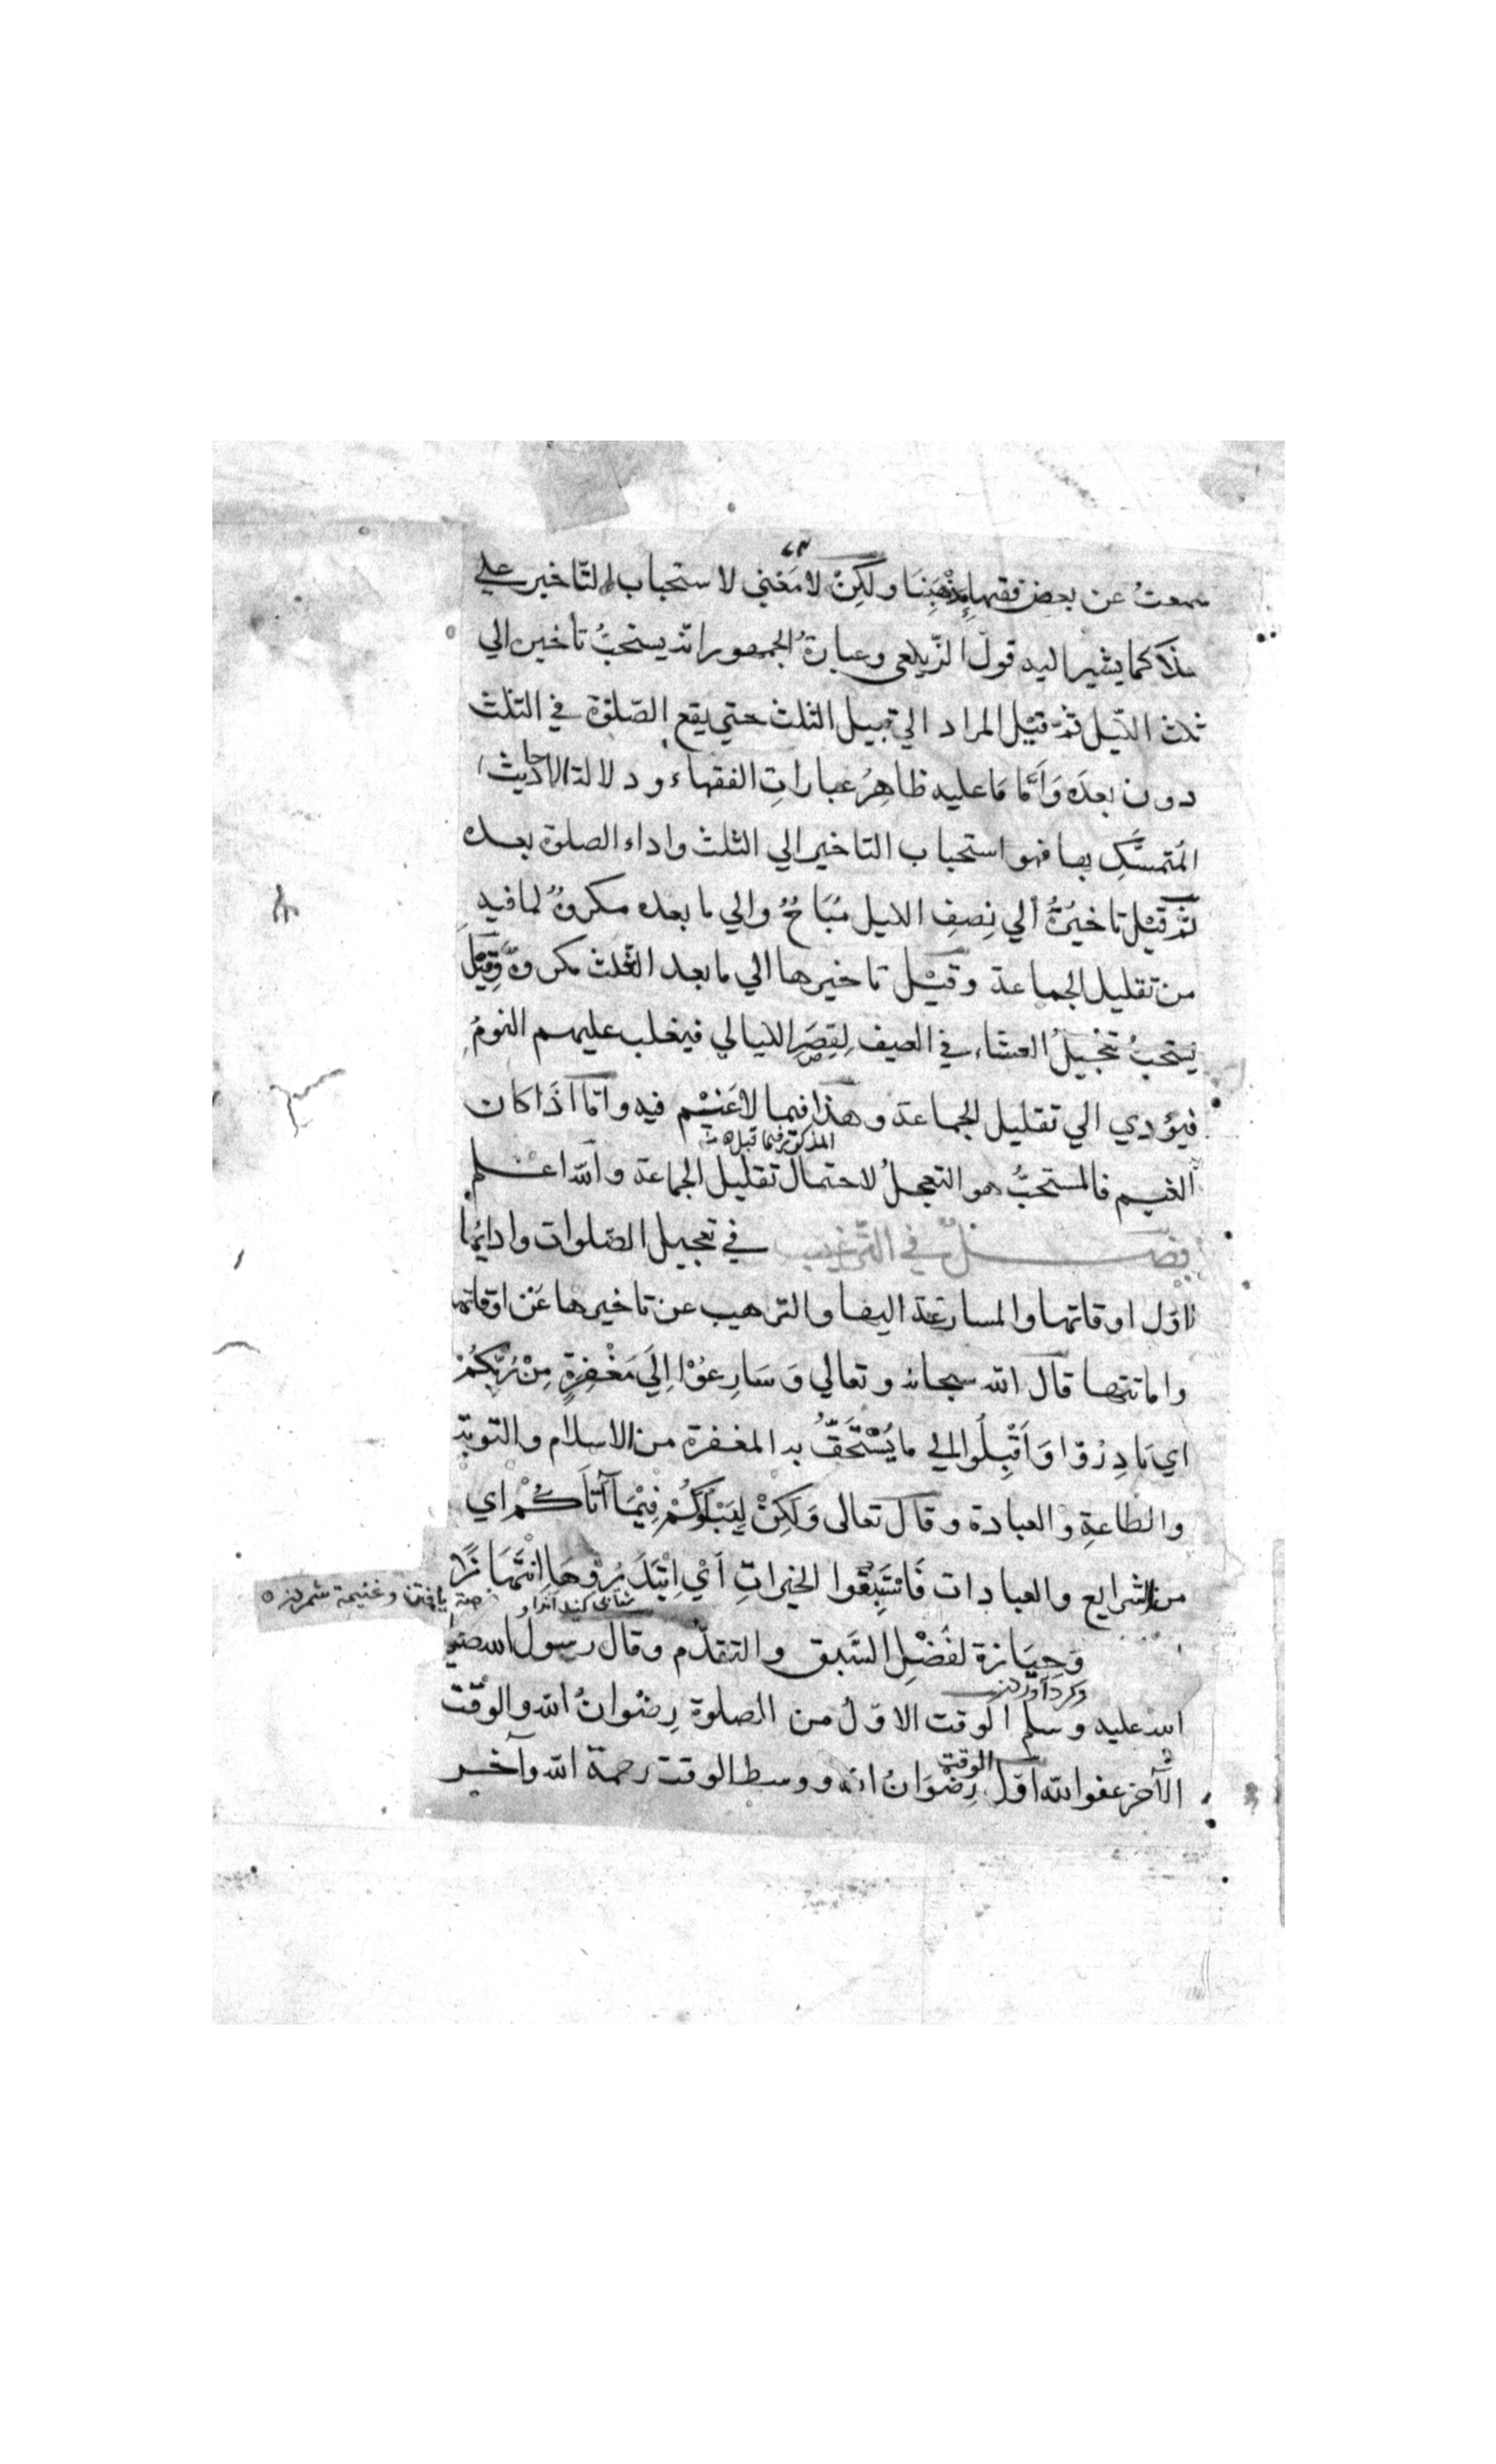 سمعتُ عن بعض فقهاء مذهبِنَا ولكِنْ لا مَعْني لاستحباب التاخير علي
هذا كما يشير اليه قول الزّيلعي وعبارةُ الجمهور انه يستحبُّ تاخيره الي
ثلث الليل ثمّ قيْل المراد الي قبيل الثلث حتي يقع الصّلوة في الثلث
دون بعدَه وَاَمَّا مَا عليه ظاهِرُ عباراتِ الفقهاء ودلالة الاحاديث
المُتمسَّكِ بها فهو استحباب التاخير الي الثلث واداء الصلوة بعده
ثمّ قيْل تاخيرُهُ الي نِصفِ الليل مُبَاحٌ والي ما بعده مكروهٌ لما فيه
من تقليل الجماعة وقيْل تاخيرها الي ما بعد الثلث مكروهٌ وَقِيْل
يستحبُّ تعجيلُ العشاء في الصيف لِقِصَرِ الليالي فيغلب عليهم النومُ
فيؤدي الي تقليل الجماعة وهذا فيما لا غَيْم فيه وامّا اذَا كان
المذكور فيما قبل
الغيم فالمستحبُّ هو التعجيلُ لاحتمال تقليل الجماعة والله اعلم
فصلٌ في الترغيب في تعجيل الصّلوات وادائها
اوّل اوقاتها والمسارعة اليها والترهيب عن تاخيرها عَنْ اوقاتها
واماتتها قال الله سبحانه وتعالي وَسَارِعُوْا اِلَي مَغْفِرَةٍ مِنْ رَّبِّكُمْ
اي بَادِرُوْا وَاَقْبِلُوا الي ما يُسْتَحَقُّ به المغفرة من الاسلام والتوبة
والطاعةِ والعبادة وقال تعالى وَلَكِنْ لِيَبْلُوَكُمْ فِيْمَا آتَاكُمْ اي
من الشرايع والعبادات فَاسْتَبِقُوا الخيراتِ اَيْ اِبْتَدِرُوْهَا اِنْتِهَازًا
شتابی کنید آنرا و
فرصة یافتن وغنیمة شمردن
وَحِيَازة لفَضْلِ السَّبق والتقدّم وقال رسول الله صلي
وکرد آوردن
الله عليه وسلم الوقت الاوّلُ من الصلوة رِضْوانُ الله والوَقْت
الآخر عفو الله اوّل الوقت رِضْوَانُ الله ووسط الوقت رحمة الله وآخر